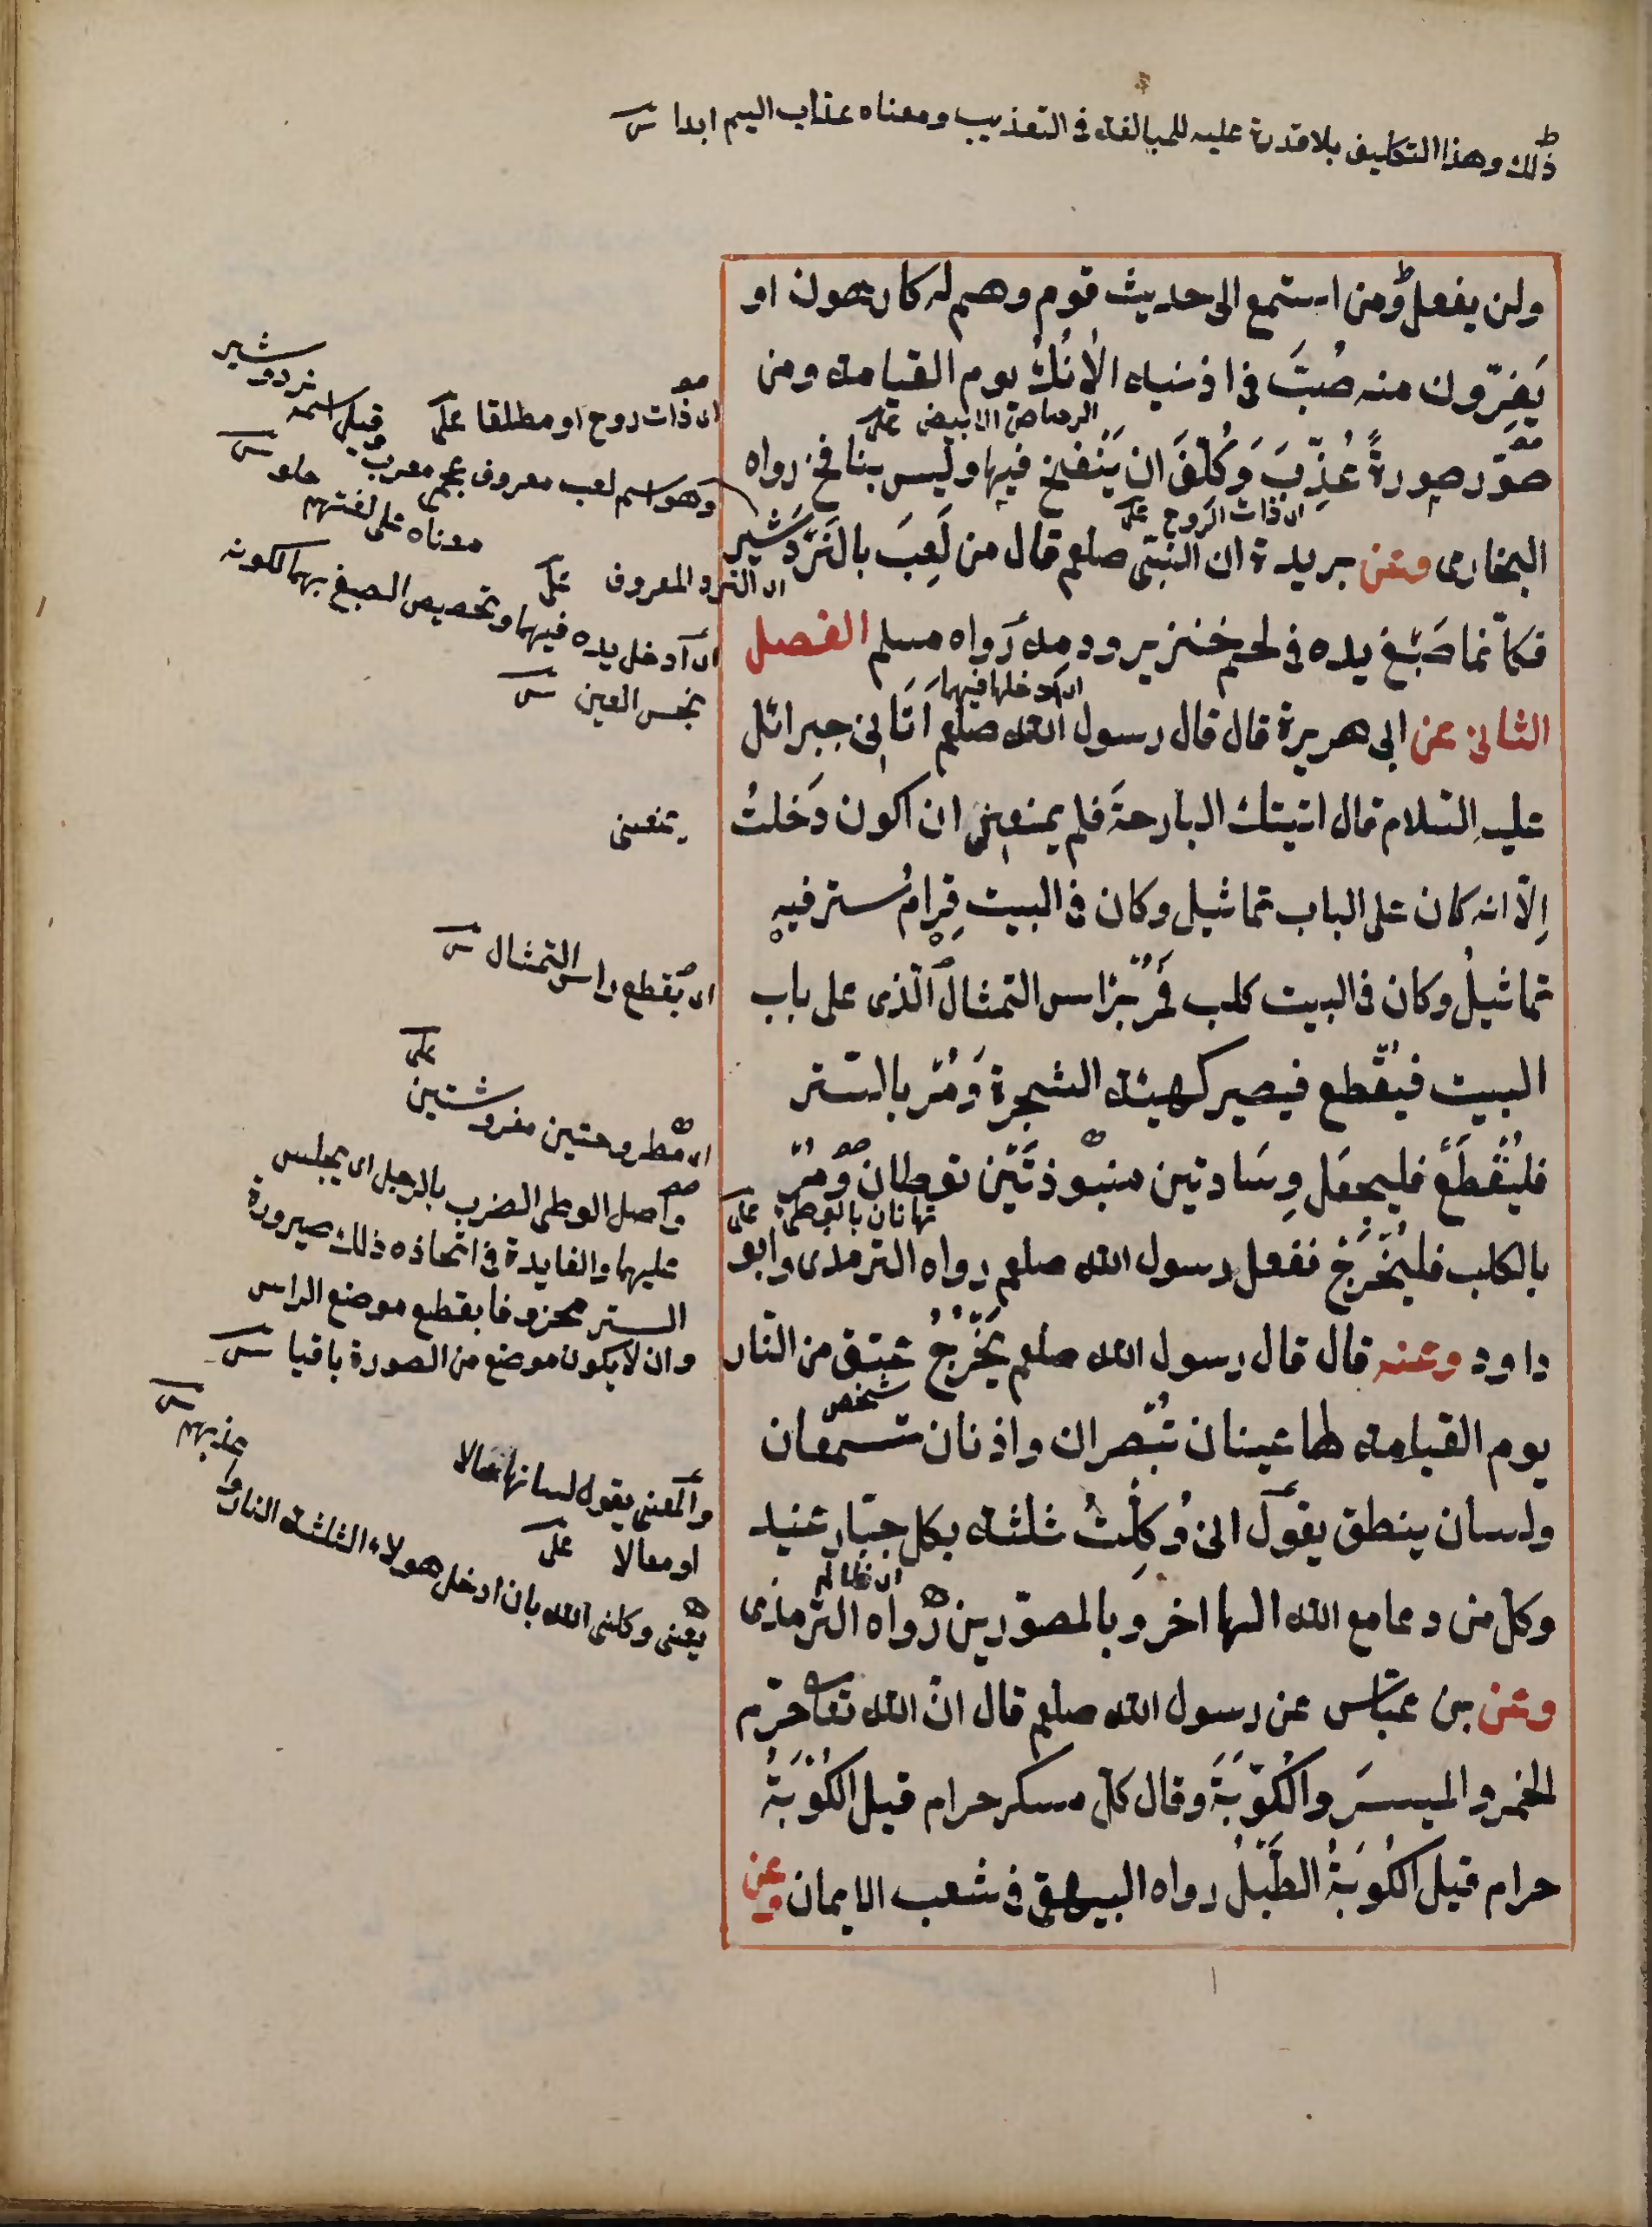 ذلك وهذا التكليف بلا قدرة عليه للمبالغة فى التعذيب ومعناه عذاب اليم ابدا
ولن يفعل ومن استمع الى حديث قوم وهم له كارهون او
يَفِرّون منه صُبَّ فى اذنيه الاٰنُكُ يوم القيامة ومن
الرصاص الابيض على
صوّر صورةً عُذِّبَ وَكُلِّفَ ان يَنْفخ فيها وليس بنافخ رواه
اى ذات الروح على
البخارى وعن بريدة ان النبى صلعم قال من لَعِبَ بالنَرْدَشير
اى النرد المعروف على
فكانّما صَبَغ يده فى لحم خنزير ودمه رواه مسلم الفصل
اى ادخلها فيهما
الثانى عن ابى هريرة قال قال رسول الله صلعم اَتَانِى جبرائل
عليه السّلام قال اتيتك البارحةَ فلم يمنعنى ان اكون دَخلتُ
اِلّا انه كان على الباب تماثيل وكان فى البيت قِرامُ ستر فيه
تماثيلُ وكان فى البيت كلب فَمُرْ برَاس التمثال الّذى على باب
البيت فيُقْطع فيصير كهيئة الشجرة وَمُرْ بالسّتر
فليُقْطَعْ فليجعَل وِسَادتين منبُوذتَيْن توطان وَمُرْ
تهانان بالوطى على
بالكلب فليُخْرَجْ ففعل رسول الله صلعم رواه الترمذى وابو
داود وعنه قال قال رسول الله صلعم يَخْرُجُ عنق من النّار
شخص
يوم القيامة لها عينان تُبْصران واذنان تسمعان
ولسان ينطق يقول انى وُكِلْتُ بثلثة بكل جبّار عنيد
اى ظالم
وكل من دعا مع الله الها اخر وبالمصوّرين رواه الترمذى
وعن بن عبّاس عن رسول الله صلعم قال انّ الله تعا حرّم
الخمر والميسرَ والكُوْبَةَ وقال كل مسكر حرام قيل الكُوْبَةُ
حرام قيل الكُوبَةُ الطَّبْلُ رواه البيهقى فى شعب الايمان وعن
اى ذات روح او مطلقا على
وهو اسم لعب معروف عجمى معرب وقيل اسمه نرد وشير
معناه على لغتهم حلو
اى ادخل يده فيهما وتخصيص الصبغ بهما لكونه
نجس العين
يمنعنى
اى يقطع راس التمثال
اى مطروحتين مفروشتين على
واصل الوطى الضرب بالرجل اى يجلس
عليهما والفايدة فى اتخاذه ذلك صيرورة
الستر محزوفا بقطع موضع الراس
وان لا يكون موضع من الصورة باقيا
والمعنى يقول لسانها حالا
او مقالا على
يعنى وكلنى الله بان ادخل هولاء الثلثة النار واعذبهم